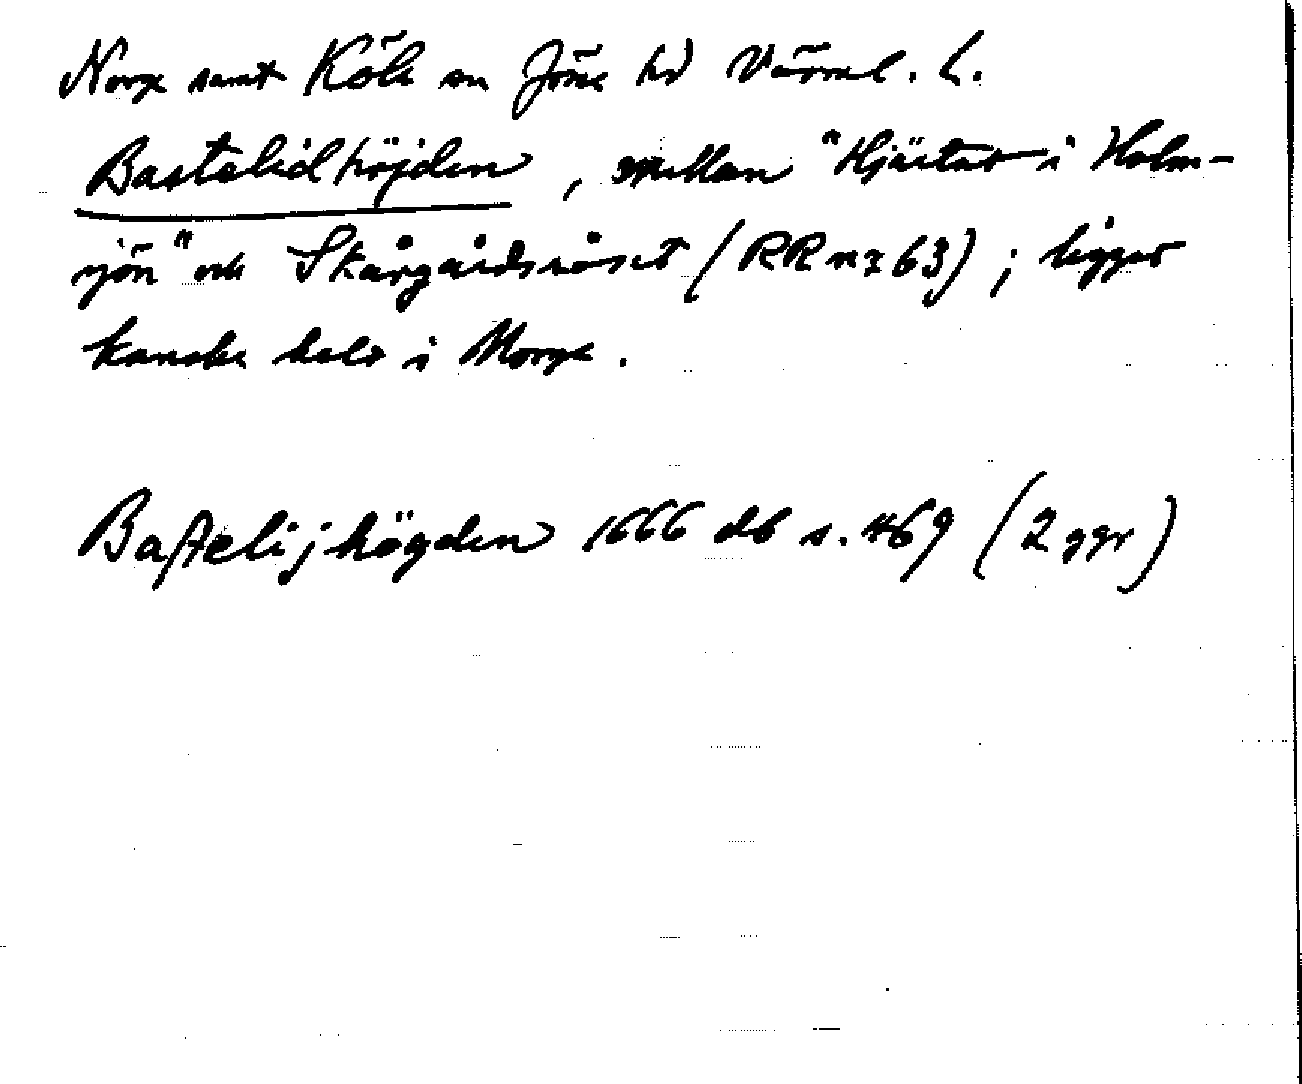 Norge samt Köla sn Jösse hd Värml. l.
Bastelidhöjden, mellan "Hjärtat i Holm-
sjön" och Skårgårdsröset (RR nr 63); ligger
kanske helt i Norge.
Baſtelijhögden 1666 db s. 469 (2 ggr)